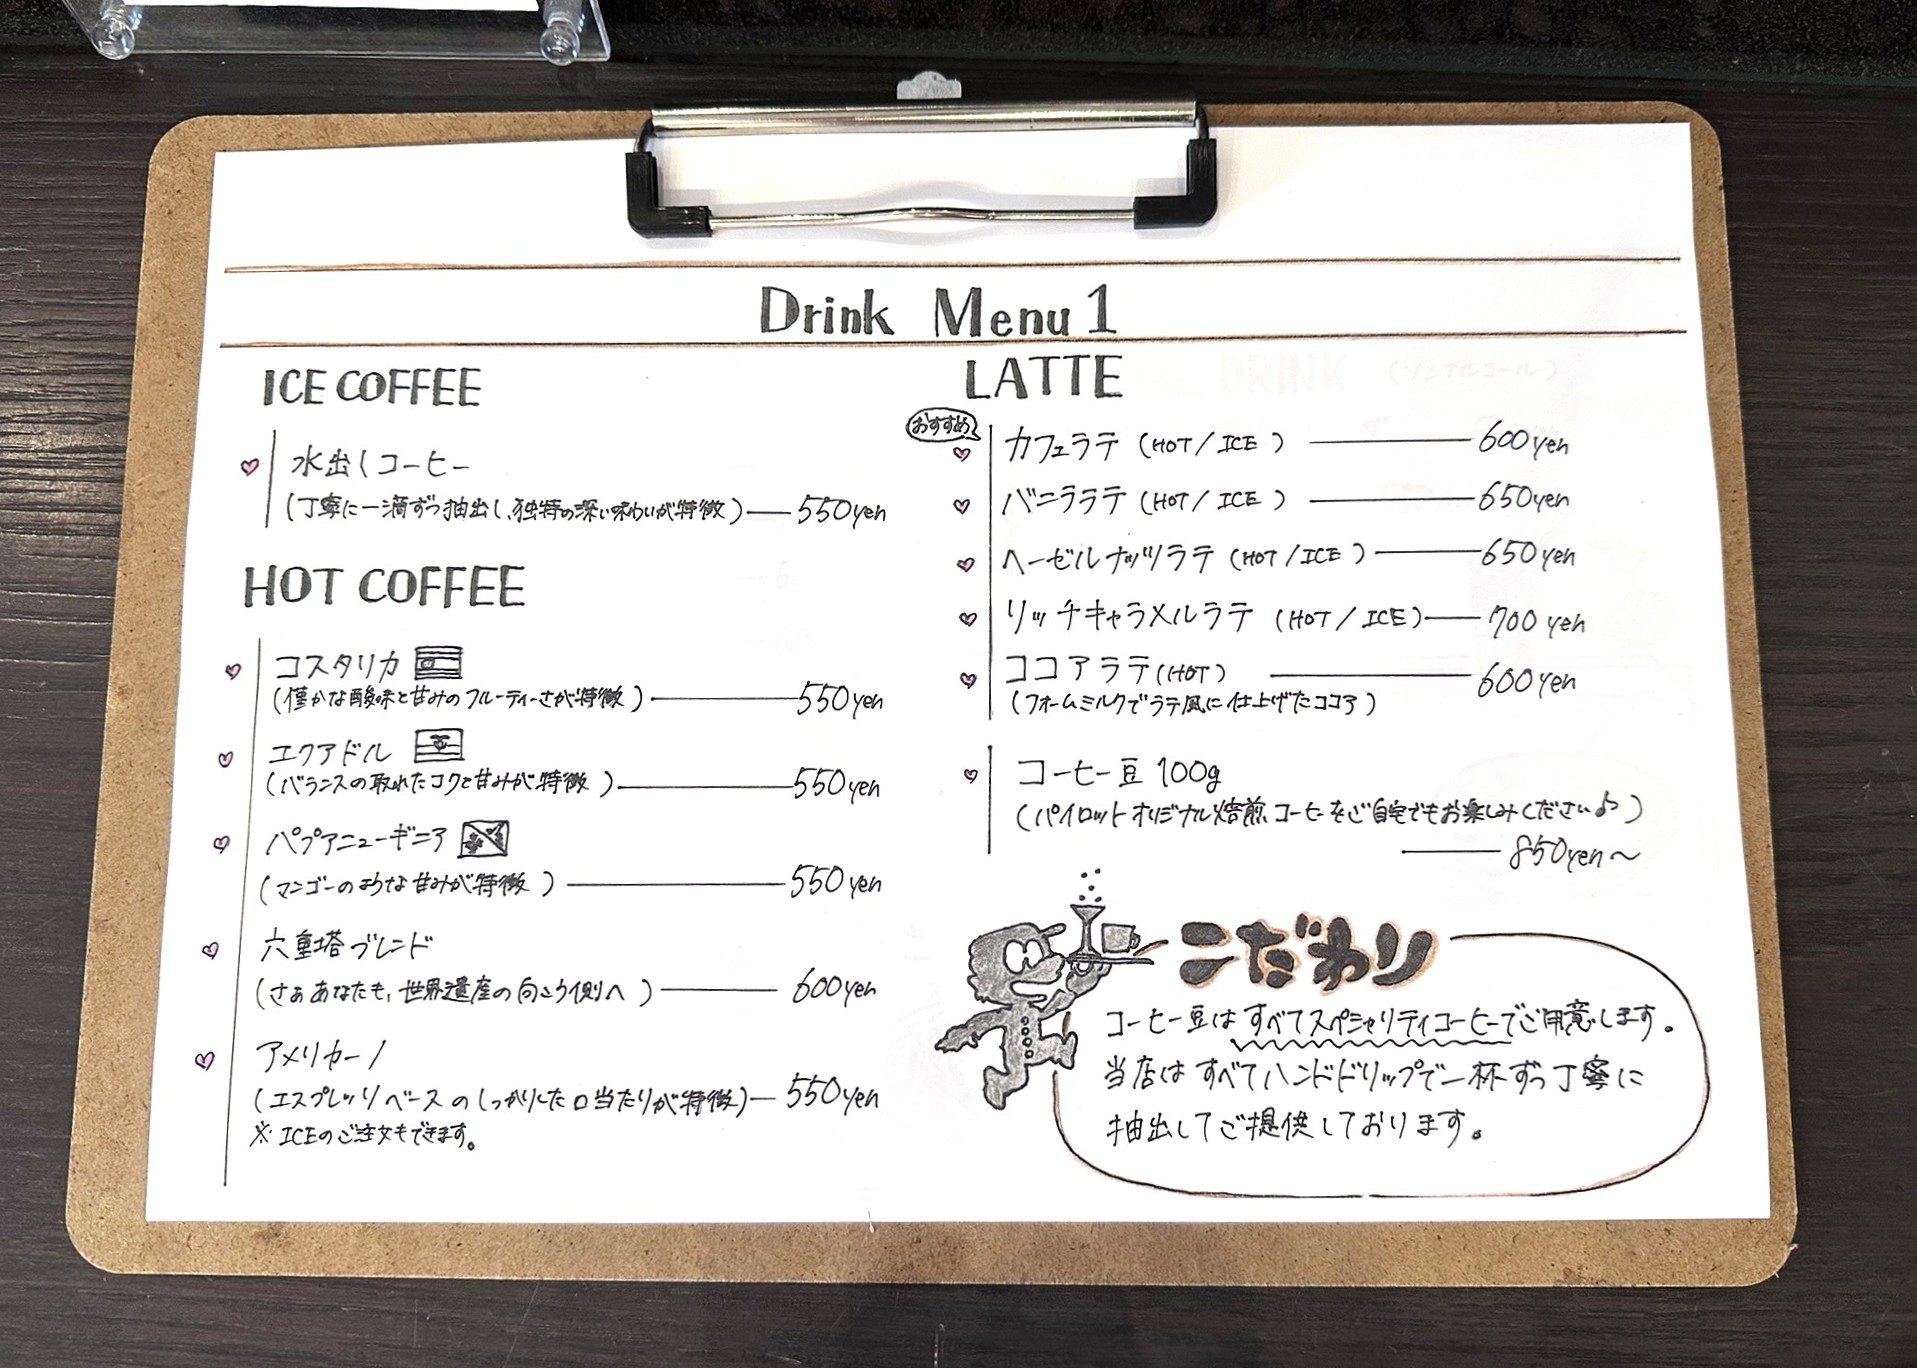 Drink Menu 1
ICE COFFEE
水出しコーヒー
(丁寧に一滴ずつ抽出し、独特の深い味わいが特徴) 550yen
HOT COFFEE
コスタリカ
(僅かな酸味と甘みのフルーティーさが特徴) 550yen
エクアドル
(バランスの取れたコクと甘みが特徴) 550yen
パプアニューギニア
(マンゴーのような甘みが特徴) 550yen
六重塔ブレンド
(さぁあなたも、世界遺産の向こう側へ) 600yen
アメリカーノ
(エスプレッソベースのしっかりした口当たりが特徴) 550yen
※ICEのご注文もできます。
LATTE
おすすめ
カフェラテ (HOT / ICE) 600yen
バニララテ (HOT / ICE) 650yen
ヘーゼルナッツラテ (HOT / ICE) 650yen
リッチキャラメルラテ (HOT / ICE) 700yen
ココアラテ (HOT) 600yen
(フォームミルクでラテ風に仕上げたココア)
コーヒー豆 100g
(パイロットオリジナル焙煎コーヒーをご自宅でもお楽しみください♪)
850yen〜
こだわり
コーヒー豆はすべてスペシャリティコーヒーでご用意します。
当店はすべてハンドドリップで一杯ずつ丁寧に
抽出してご提供しております。